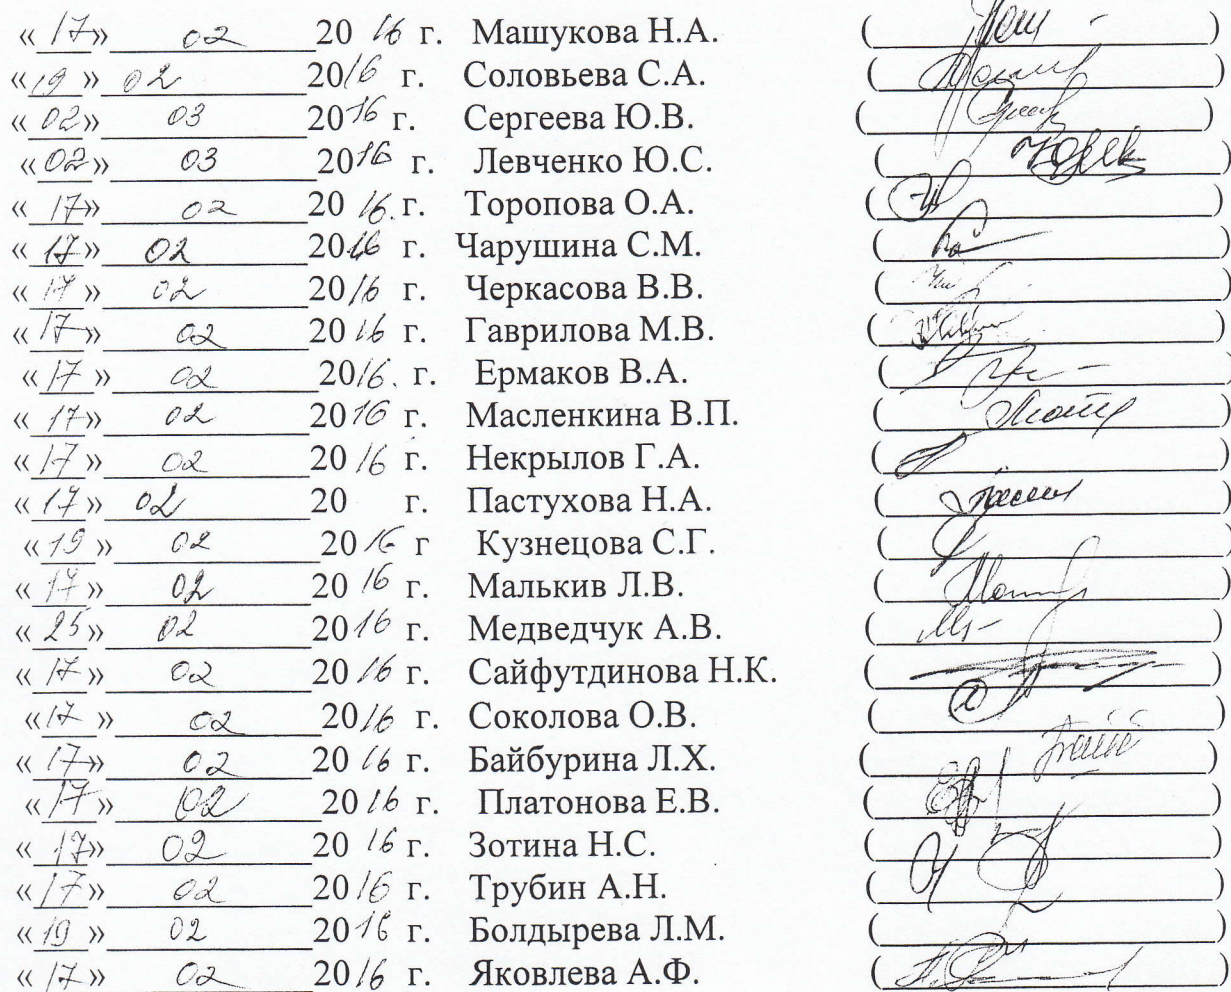 « 17» 02 20 16 г. Машукова Н.А. ( )
«19 » 02 2016 г. Соловьева С.А. ( )
« 02» 03 2016 г. Сергеева Ю.В. ( )
«02» 03 2016 г. Левченко Ю.С. ( )
« 17» 02 20 16. г. Торопова О.А. ( )
« 17» 02 2016 г. Чарушина С.М. ( )
« 17 » 02 2016 г. Черкасова В.В. ( )
« 17» 02 20 16 г. Гаврилова М.В. ( )
«17 » 02 2016. г. Ермаков В.А. ( )
« 17» 02 2016 г. Масленкина В.П. ( )
« 17 » 02 20 16 г. Некрылов Г.А. ( )
« 17 » 02 20 г. Пастухова Н.А. ( )
« 19 » 02 20 16 г Кузнецова С.Г. ( )
« 17 » 02 20 16 г. Малькив Л.В. ( )
« 25» 02 2016 г. Медведчук А.В. ( )
« 17 » 02 20 16 г. Сайфутдинова Н.К. ( )
«17 » 02 2016 г. Соколова О.В. ( )
« 17» 02 20 16 г. Байбурина Л.Х. ( )
« 17 » 02 20 16 г. Платонова Е.В. ( )
« 17» 02 20 16 г. Зотина Н.С. ( )
« 17» 02 2016 г. Трубин А.Н. ( )
« 19 » 02 2016 г. Болдырева Л.М. ( )
« 17 » 02 2016 г. Яковлева А.Ф. ( )